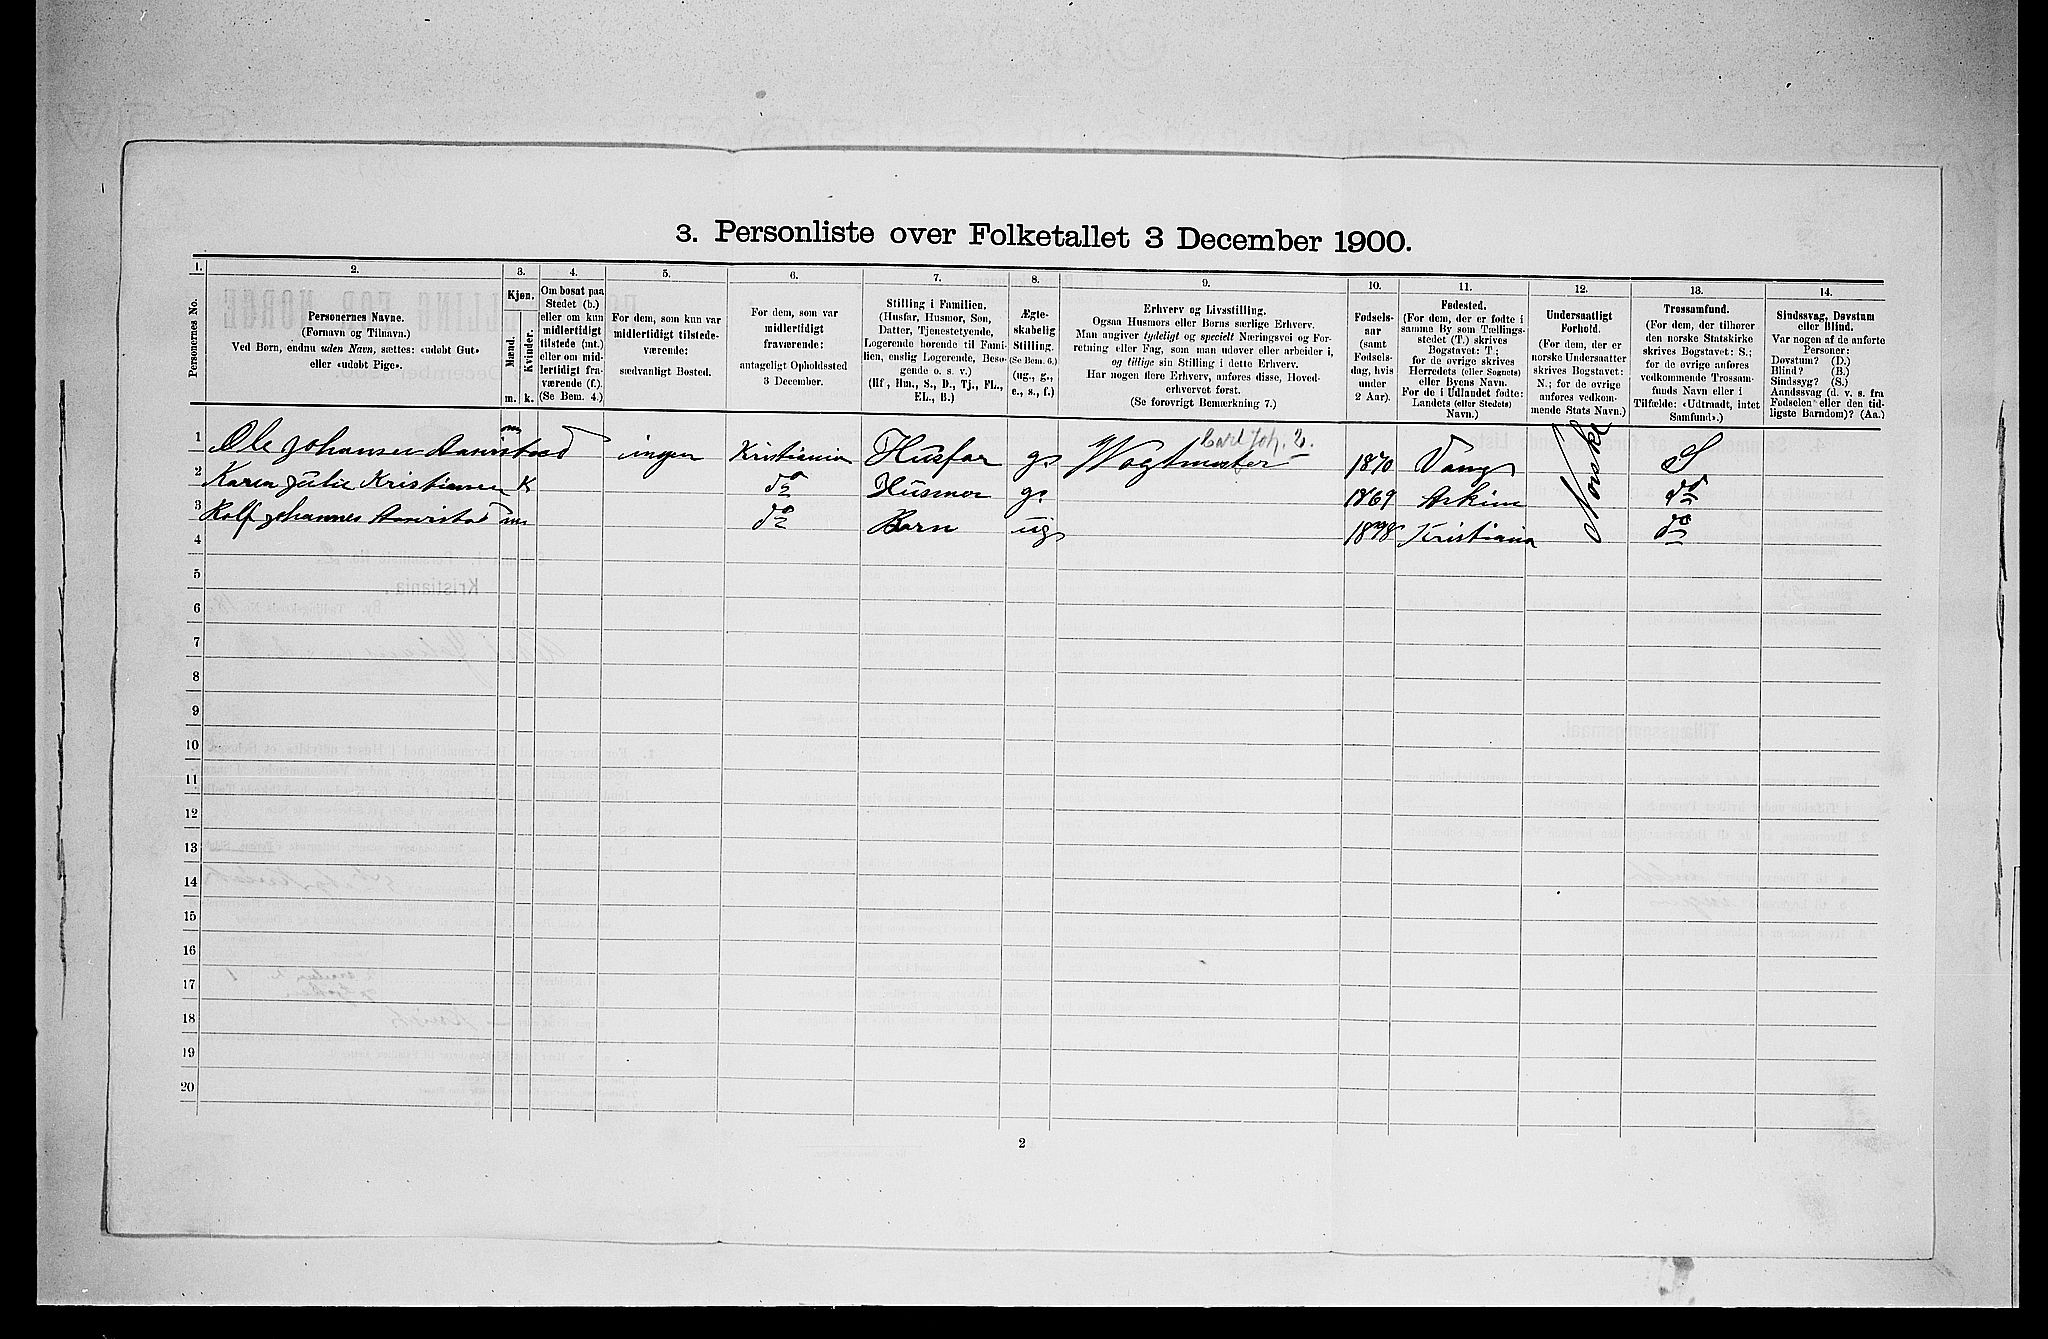 3. Personliste over Folketallet 3 December 1900.
1. 2. 3. 4. 5. 6. 7. 8. 9. 10. 11. 12. 13. 14.
Personernes No.
Personernes Navne.
(Fornavn og Tilnavn.)
Ved Børn, endnu uden Navn, sættes: «udøbt Gut»
eller «udøbt Pige».
Kjøn.
Mænd.
Kvinder.
m. k.
Om bosat paa
Stedet (b.)
eller om kun
midlertidigt
tilstede (mt.)
eller om mid-
lertidigt fra-
værende (f.)
(Se Bem. 4.)
For dem, som kun var
midlertidigt tilstede-
værende:
sædvanligt Bosted.
For dem, som var
midlertidigt
fraværende:
antageligt Opholdssted
3 December.
Stilling i Familien.
(Husfar, Husmor, Søn,
Datter, Tjenestetyende,
Logerende hørende til Fami-
lien, enslig Logerende, Besø-
gende o. s. v.)
(Hf., Hm., S., D., Tj., FL.,
EL., B.)
Ægte-
skabelig
Stilling.
(Se Bem. 6.)
(ug., g.,
e., s., f.)
Erhverv og Livsstilling.
Ogsaa Husmors eller Børns særlige Erhverv.
Man angiver tydeligt og specielt Næringsvei og For-
retning eller Fag, som man udøver eller arbeider i,
og tillige sin Stilling i dette Erhverv.
Har nogen flere Erhverv, anføres disse, Hoved-
erhvervet først.
(Se forøvrigt Bemærkning 7.)
Fødsels-
aar
(samt
Fødsels-
dag, hvis
under
2 Aar).
Fødested.
(For dem, der er fødte i
samme By som Tællings-
stedet (T.) skrives
Bogstavet: T.;
for de øvrige skrives
Herredets (eller Sognets)
eller Byens Navn.
For de i Udlandet fødte:
Landets (eller Stedets)
Navn.)
Undersaatligt
Forhold.
(For dem, der er
norske Undersaatter
skrives Bogstavet:
N.; for de øvrige
anføres vedkom-
mende Stats Navn.)
Trossamfund.
(For dem, der tilhører
den norske Statskirke
skrives Bogstavet: S.;
for de øvrige anføres
vedkommende Trossam-
funds Navn eller i
Tilfælde: «Udtraadt, intet
Samfund».)
Sindssvag, Døvstum
eller Blind.
Var nogen af de anførte
Personer:
Døvstum? (D.)
Blind? (B.)
Sindssyg? (S.)
Aandssvag (d. v. s. fra
Fødselen eller den tid-
ligste Barndom)? (Aa.)
1 Ole Johansen m ingen Kristiania Husfar g. Carl Joh. 2. Vogtmester 1870 Vang Norske S
2 Karen Julie Kristiansen K do Husmor g. 1869 Askim do
3 Rolf Johannes m do Barn ug 1898 Kristiania do
4
5
6
7
8
9
10
11
12
13
14
15
16
17
18
19
20
2